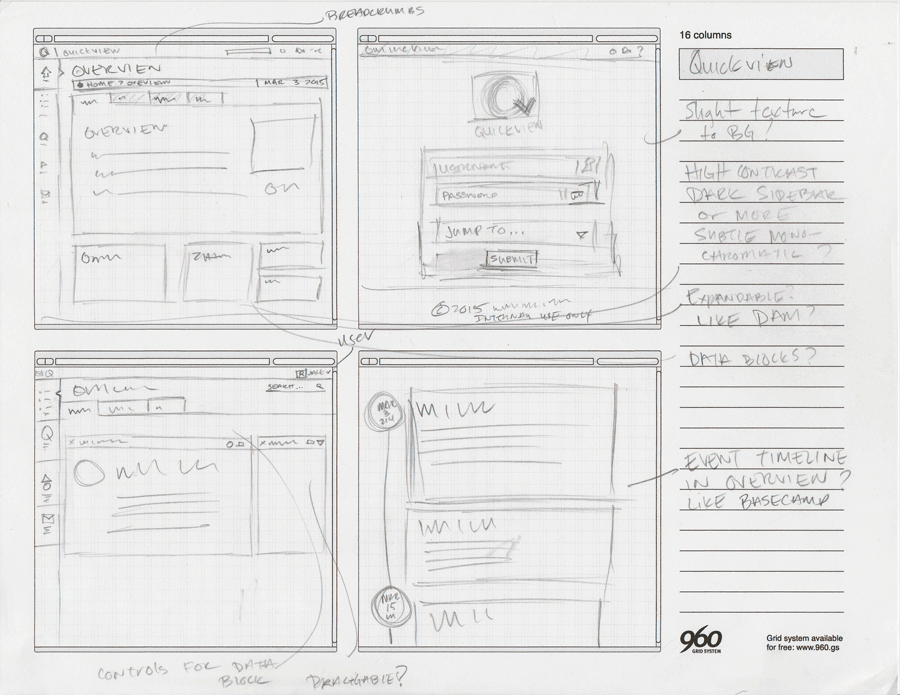 BREADCRUMBS
QUICKVIEW
?
OVERVIEW
HOME > OVERVIEW
MAR 3 2015
OVERVIEW
QUICKVIEW
USERNAME
PASSWORD
JUMP TO...
SUBMIT
©2015
INTERNAL USE ONLY
16 columns
QUICKVIEW
Slight texture
to BG!
HIGH CONTRAST
DARK SIDEBAR
OR MORE
SUBTLE MONO-
CHROMATIC?
EXPANDABLE?
LIKE DAM?
DATA BLOCKS?
EVENT TIMELINE
IN OVERVIEW?
LIKE BASECAMP
USER
SEARCH...
MAR
3
MAR
15
CONTROLS FOR DATA
BLOCK
DRAGGABLE?
960
GRID SYSTEM
Grid system available
for free: www.960.gs